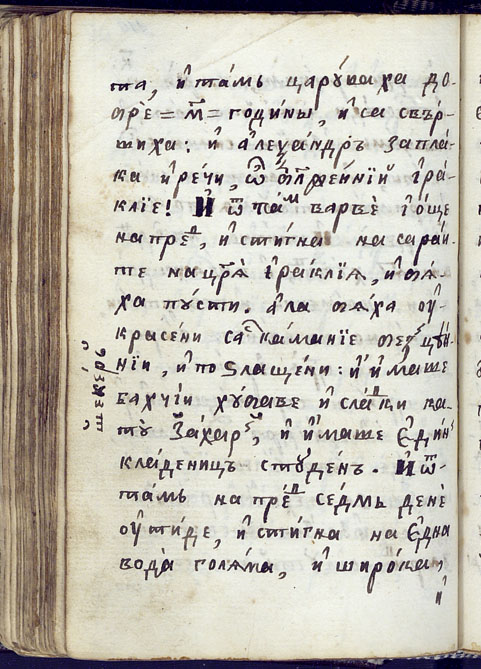 та, и҆ та́мь цару́каха до-
брѐ = м҃ = годи́ны, и҆ са свър-
шиха: и҆ а҆леѯандръ запла́-
ка и҆ речи,
и҆ра́-
клїе! И҆ ѿ та́ⷨ варвѐ и҆ ѻ҆ще
напреⷣ, и҆ стигна на сараи҆-
те на цр҃ѧ и҆раклїѧ, и҆ бѧ-
ха пу́сти. а҆ла бѧ́ха оу҆-
красе́ни са ка́манїе
нїи, и҆ поѕлаще́ни: и҆ и҆́маше
бахчїи ху́баве и҆ слаⷣки ка-
ту̀ за́харъ, и҆ и҆́маше є҆ди́нъ
кла́деницъ студе́нъ. И҆ ѿ-
та́мь на преⷣ се́дмь денѐ
оу҆тиде, и҆ стигна на є҆дна̀
вода̀ голѧ́ма, и҆ широ́ка,
и҆
шекеръ